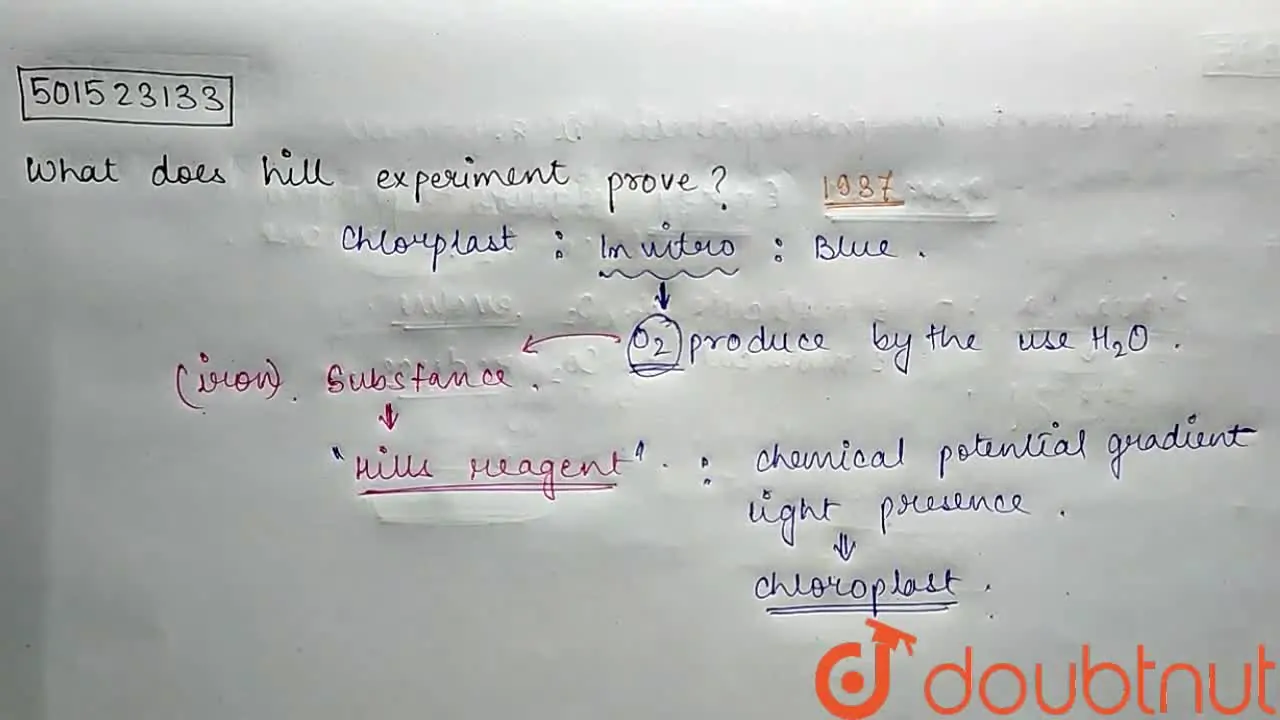 501523133
What does hill experiment prove? 1937
Chlorplast : In vitro : Blue.
O2 produce by the use H2O.
(iron). Substance.
"Hills reagent". : chemical potential gradient
light presence.
chloroplast.
doubtnut